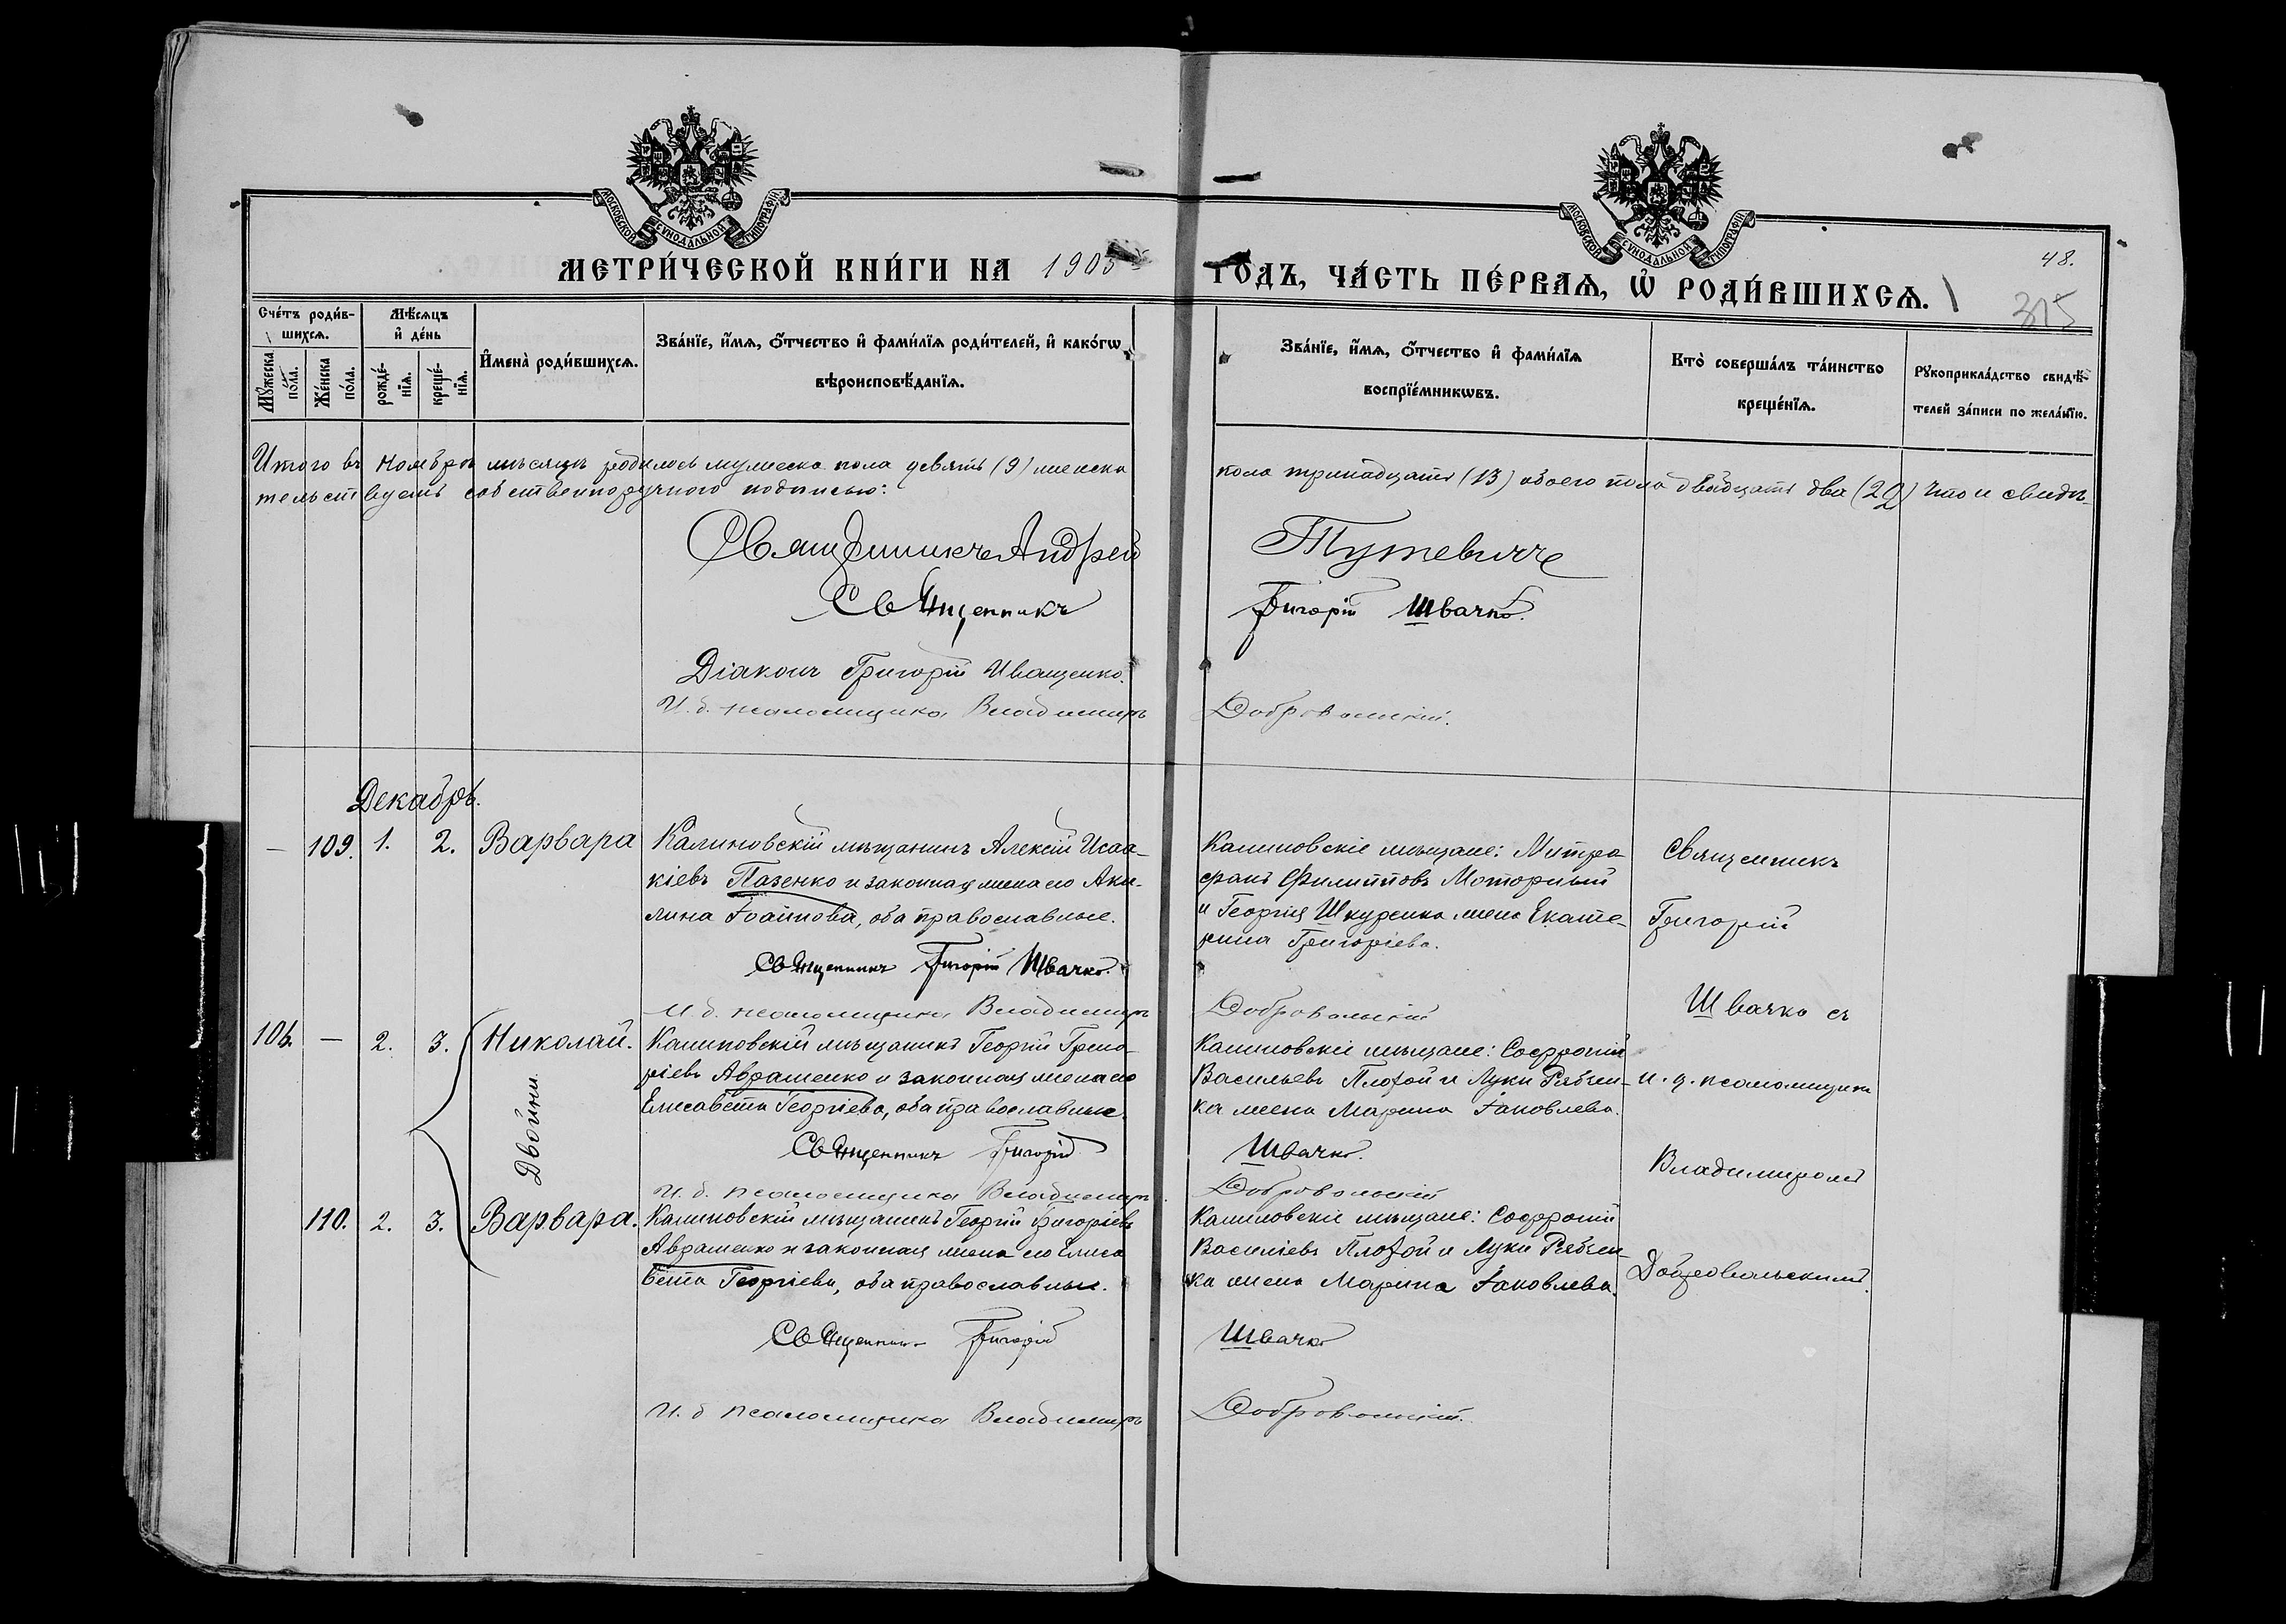 МОСКОВСКОЙ СУНОДАЛЬНОЙ ТИПОГРАФІИ
МОСКОВСКОЙ СУНОДАЛЬНОЙ ТИПОГРАФІИ
МЕТРИ́ЧЕСКОЙ КНИ́ГИ НА 1905
ГОДЪ, ЧА́СТЬ ПЕ́РВАѦ, Ѡ҆ РОДИ́ВШИХСѦ.
48.
315
Сче́тъ роди́в-
шихсѧ.
Мѣ́сѧцъ
и҆ де́нь
Мꙋ́жеска по́ла.
Же́нска по́ла.
рожде́-нїѧ.
креще́-нїѧ.
И҆мена̀ роди́вшихсѧ.
Зва́нїе, и҆́мѧ, ѻ҆́тчество и҆ фами́лїѧ роди́телей, и҆ како́гѡ
вѣроисповѣ́данїѧ.
Зва́нїе, и҆́мѧ, ѻ҆́тчество и҆ фами́лїѧ
воспрїе́мникѡвъ.
Кто̀ соверша́лъ та́инство
креще́нїѧ.
Рꙋкоприкла́дство свидѣ́-
телей за́писи по жела́нїю.
Итого въ Ноябрѣ мѣсяцѣ родилось мужеска пола девять (9) женска
пола тринадцать (13) обоего пола двадцать два (22) Что и свидѣ-
тельствуемъ собственноручною подписью:
Священникъ Андрей
Тутевичъ
Священникъ
Григорій Швачко.
Діаконъ Григорій Иващенко.
И. д. псаломщика Владимиръ
Добровольскій.
Декабрь.
— 109. 1. 2. Варвара
Калиновскій мѣщанинъ Алексій Исаа-
кіевъ Пазенко и законная жена его Аки-
лина Іоаннова, оба православные.
Священникъ Григорій Швачко.
И. д. псаломщика Владимиръ
Калиновскіе мѣщане: Митро-
фанъ Филипповъ Моторный
и Георгія Шкуренка жена Екате-
рина Григоріева.
Добровольскій
Священникъ
Григорій
Швачко съ
и. д. псаломщика
Владимиромъ
Добровольскимъ.
106. — 2. 3. Николай.
Двойни
Калиновскій мѣщанинъ Георгій Григо-
ріевъ Авраменко и законная жена его
Елисавета Георгіева, оба православные.
Священникъ Григорій
И. д. псаломщика Владимиръ
Калиновскіе мѣщане: Софроній
Васильевъ Плохой и Луки Рябчен-
ка жена Марина Іаковлева.
Швачко.
Добровольскій
110. 2. 3. Варвара.
Калиновскій мѣщанинъ Георгій Григоріевъ
Авраменко и законная жена его Елиса
вета Георгіева, оба православные.
Священникъ Григорій
И. д псаломщика Владимиръ
Калиновскіе мѣщане: Софроній
Василіевъ Плохой и Луки Рябчен-
ка жена Марина Іаковлева.
Швачко
Добровольскій.